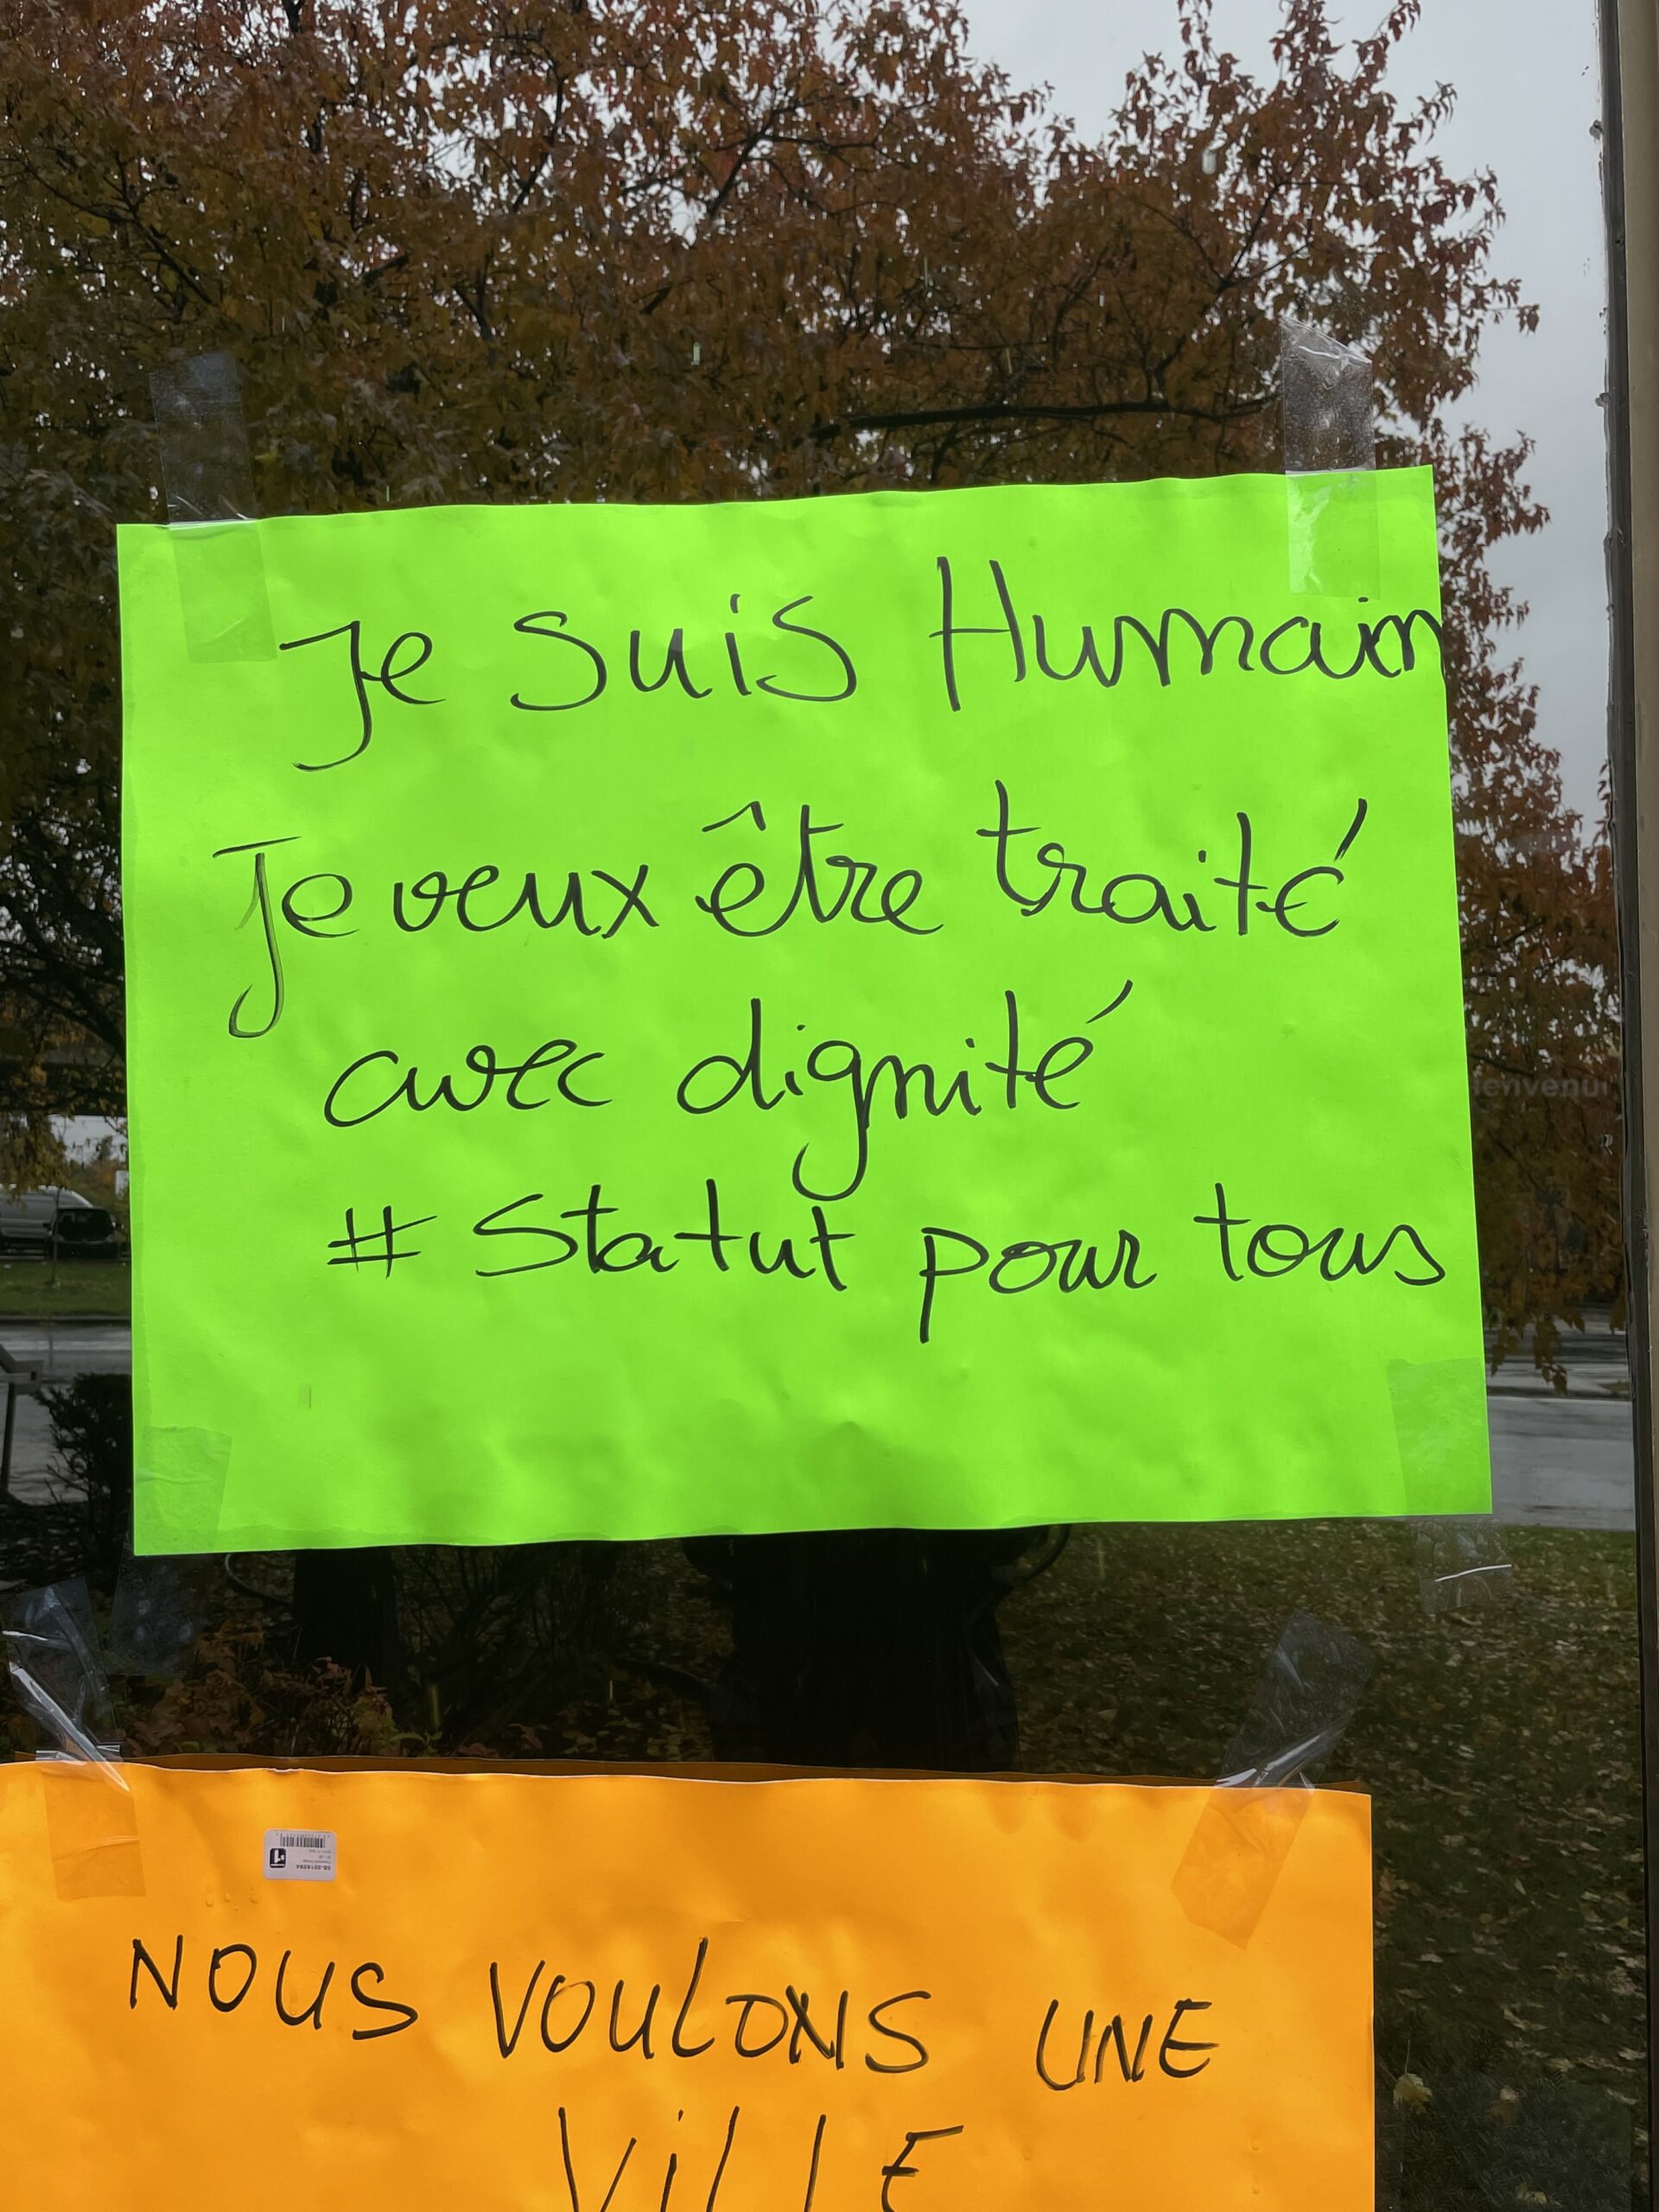 Je suis Humain
Je veux être traité
avec dignité
# Statut pour tous
NOUS VOULONS UNE
ViLLE